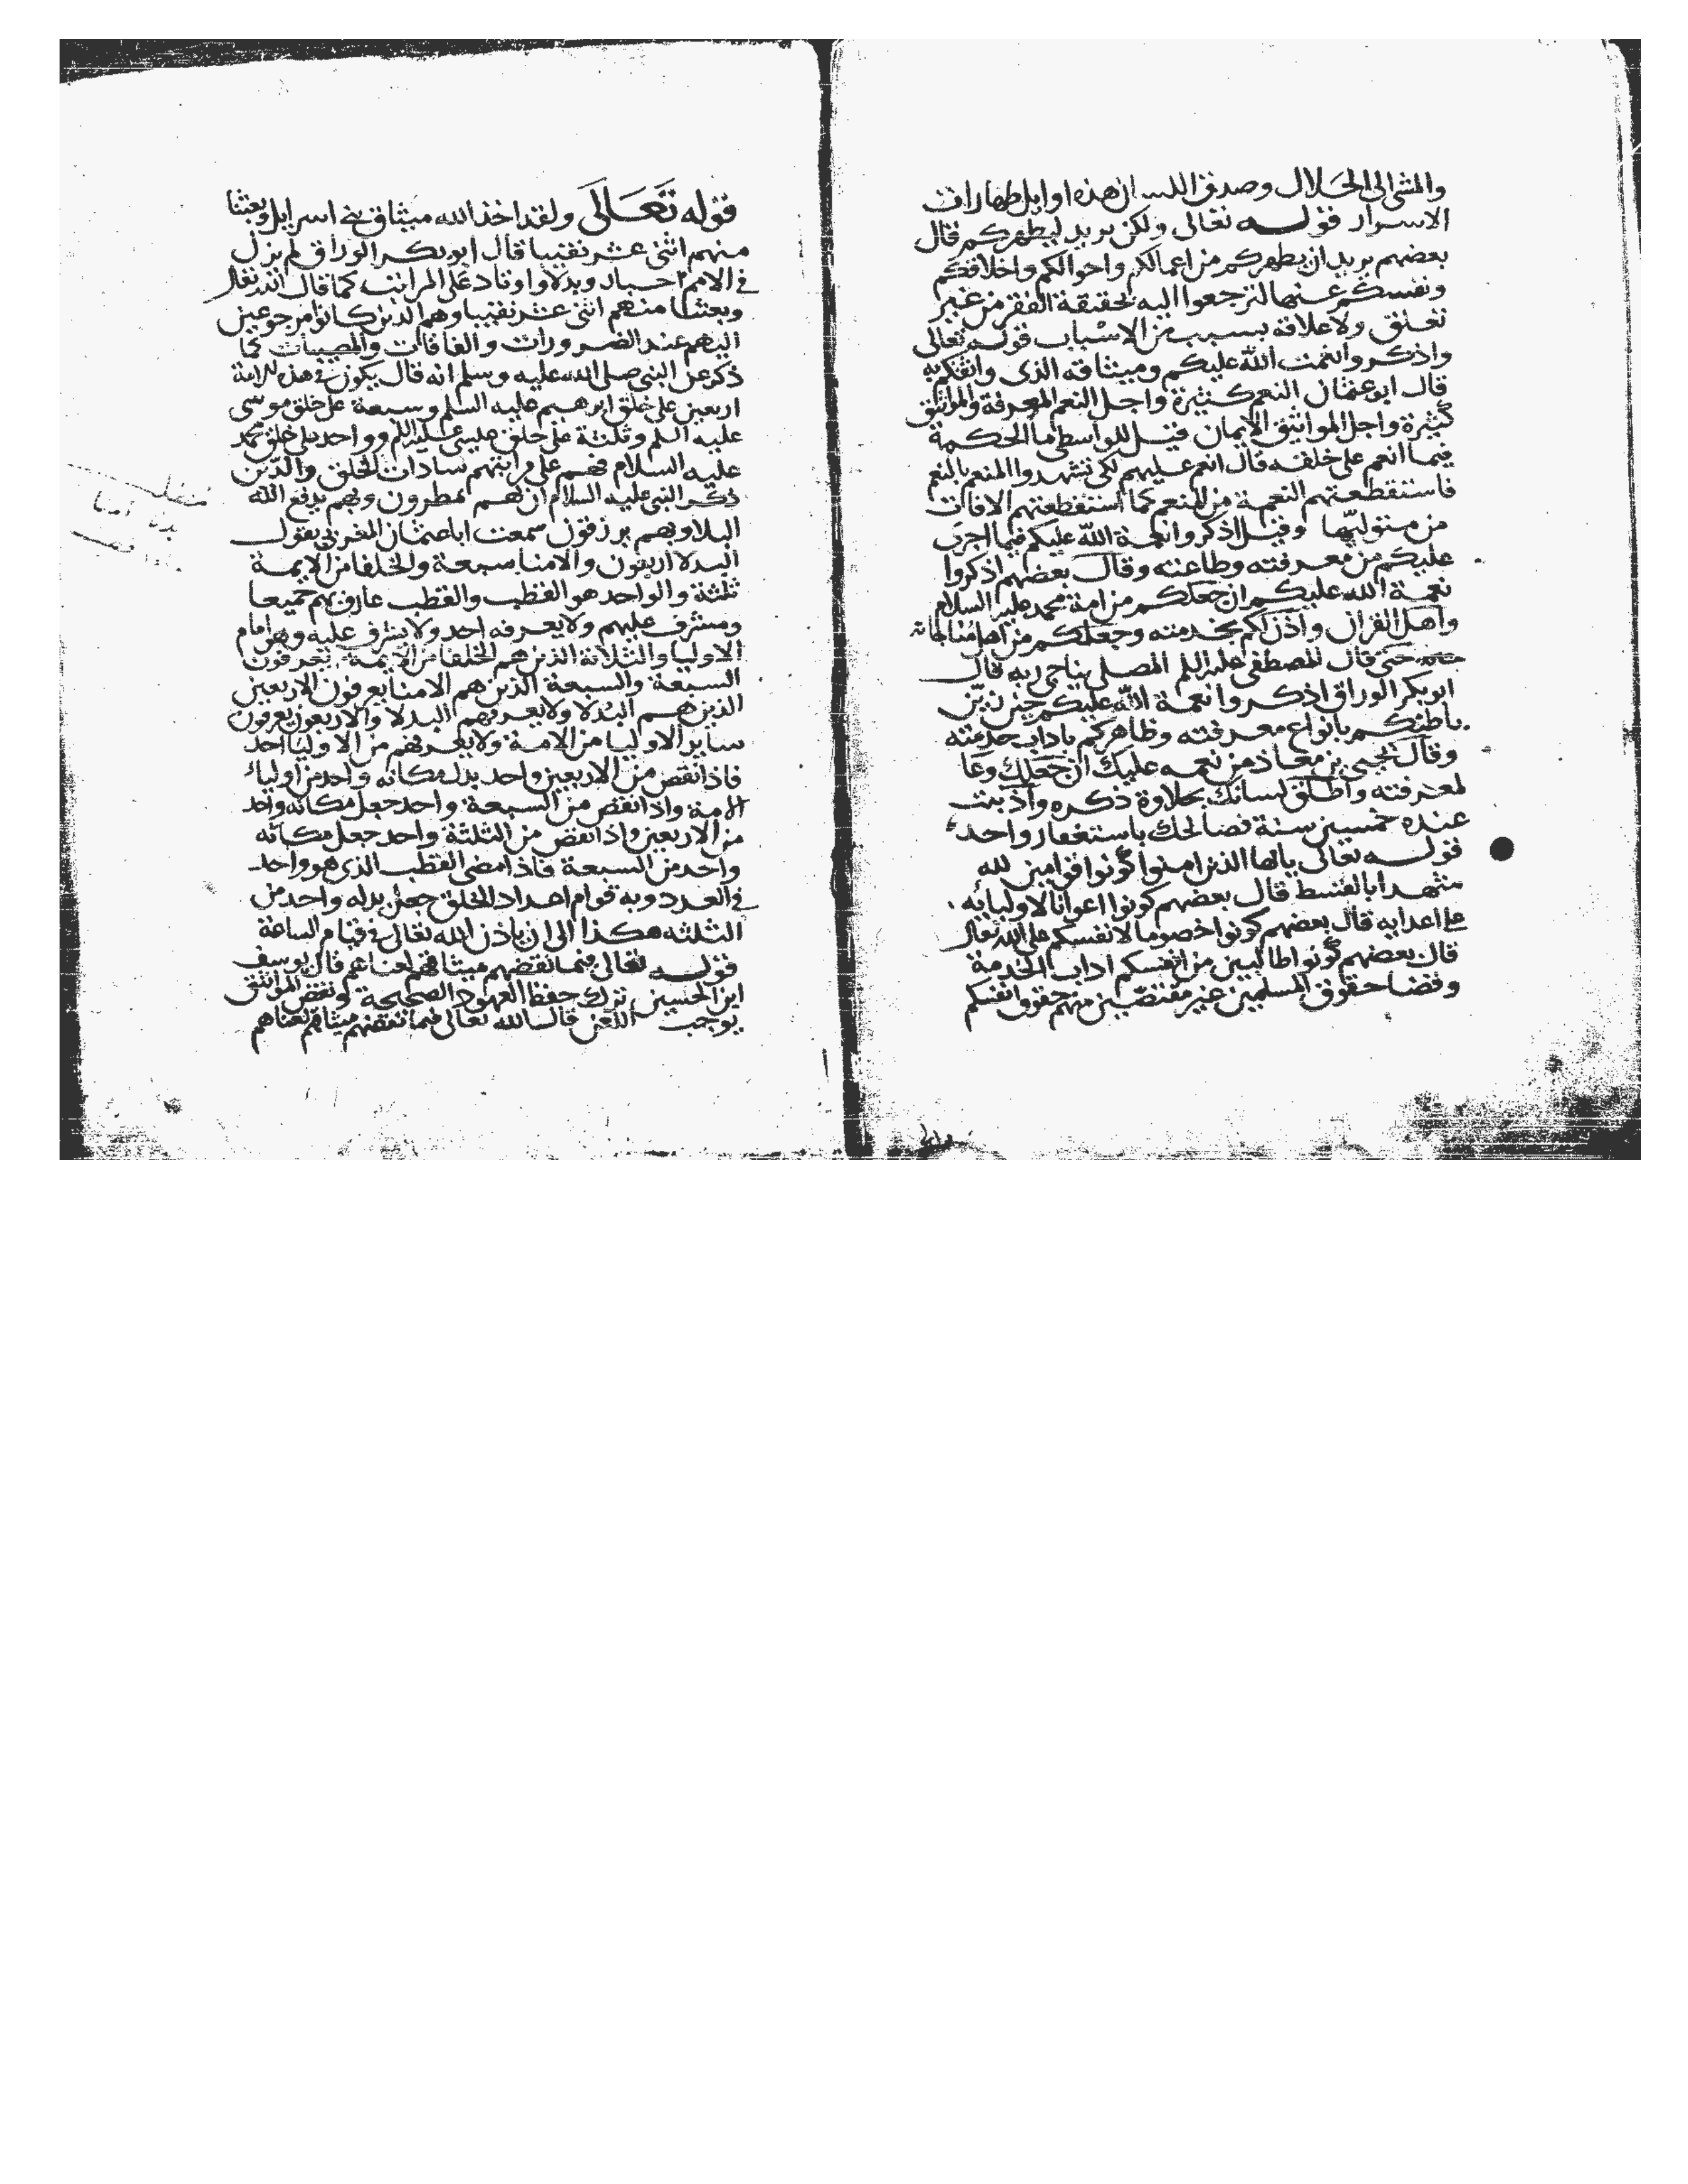 والمشى الى الحلال وصدق اللسان هذه اوايل طهارات
الاسرار قوله تعالى ولكن يريد ليطهركم قال
بعضهم يريد ان يطهركم من اعمالكم واحوالكم واخلاقكم
ونفسكم عنها لترجعوا اليه بحقيقة الفقر من غير
تعلق ولا علاقة بسبب من الاسباب قوله تعالى
واذكروا نعمت الله عليكم وميثاقه الذى واثقكم به
قال ابو عثمان النعم كثيرة واجل النعم المعرفة والمواثيق
كثيرة واجل المواثيق الايمان قيل للواسطى ما الحكمة
فيما انعم على خلقه قال انعم عليهم لكى تشهدوا المنعم بالنعم
فاستقطعتهم النعمة من المنعم كما استقطعتهم الافات
من متوليها وقيل اذكروا نعمة الله عليكم فيما اجرى
عليكم من معرفته وطاعته وقال بعضهم اذكروا
نعمة الله عليكم ان جعلكم من امة محمد عليه السلام
واهل القران واذن لكم بخدمته وجعلكم من اهل مناجاته
حتى قال المصطفى عليه السلم المصلى يناجى ربه قال
ابو بكر الوراق اذكروا نعمة الله عليكم حين زين
باطنكم بانواع معرفته وظاهركم باداب خدمته
وقال يحيى بن معاذ من نعمه عليك ان جعلك وعا
لمعرفته واطلق لسانك بحلاوة ذكره واذ بنت
عنده خمسين سنة فصالحك باستغفار واحد
قوله تعالى يايها الذين امنوا كونوا قوامين لله
شهدا بالقسط قال بعضهم كونوا اعوانا لاوليائه
على اعدايه قال بعضهم كونوا خصوما لانفسكم على الله تعالى
قال بعضهم كونوا طالبين من انفسكم اداب الخدمة
وقضا حقوق المسلمين غير مقتضين منهم حقوق انفسكم
قوله تعالى ولقد اخذ الله ميثاق بنى اسرايل وبعثنا
منهم اثنى عشر نقيبا قال ابو بكر الوراق لم يزل
فى الامم اخيار وبدلا واوتاد على المراتب كما قال الله تعالى
وبعثنا منهم اثنى عشر نقيبا وهم الذين كانوا مرجوعين
اليهم عند الضرورات والفاقات والمصيبات كما
ذكر عن النبى صلى الله عليه وسلم انه قال يكون فى هذه الامة
اربعين على خلق ابرهيم عليه السلم وسبعة على خلق موسى
عليه السلم وثلثة على خلق عيسى عليه السلم وواحد على خلق محمد
عليه السلام فهم على مراتبهم سادات الخلق والذين
ذكر النبى عليه السلام ان بهم تمطرون وبهم يدفع الله
البلا وبهم يرزقون سمعت ابا عثمان المغربى يقول
البدلا اربعون والامنا سبعة والخلفا من الايمة
ثلثة والواحد هو القطب والقطب عارف بهم جميعا
ومشرف عليهم ولا يعرفه احد ولا يشرف عليه وهو امام
الاوليا والثلاثة الذين هم الخلفا من الايمة يعرفون
السبعة والسبعة الذين هم الامنا يعرفون الاربعين
الذين هم البدلا ولا يعرفهم البدلا والاربعون يعرفون
ساير الاوليا من الامة ولا يعرفهم من الاوليا احد
فاذا نقص من الاربعين واحد بدل مكانه واحد من اولياء
الامة واذا نقص من السبعة واحد جعل مكانه واحد
من الاربعين واذا نقص من الثلثة واحد جعل مكانه
واحد من السبعة فاذا مضى القطب الذى هو واحد
فى العدد وبه قوام اعداد الخلق جعل بدله واحد من
الثلثه هكذا الى ان ياذن الله تعالى فى قيام الساعة
قوله تعالى فبما نقضهم ميثاقهم لعناهم قال يوسف
ابن الحسين ترك حفظ العهود الصحيحة ونقض المواثيق
يوجب اللعن قال الله تعالى فبما نقضهم ميثاقهم لعناهم